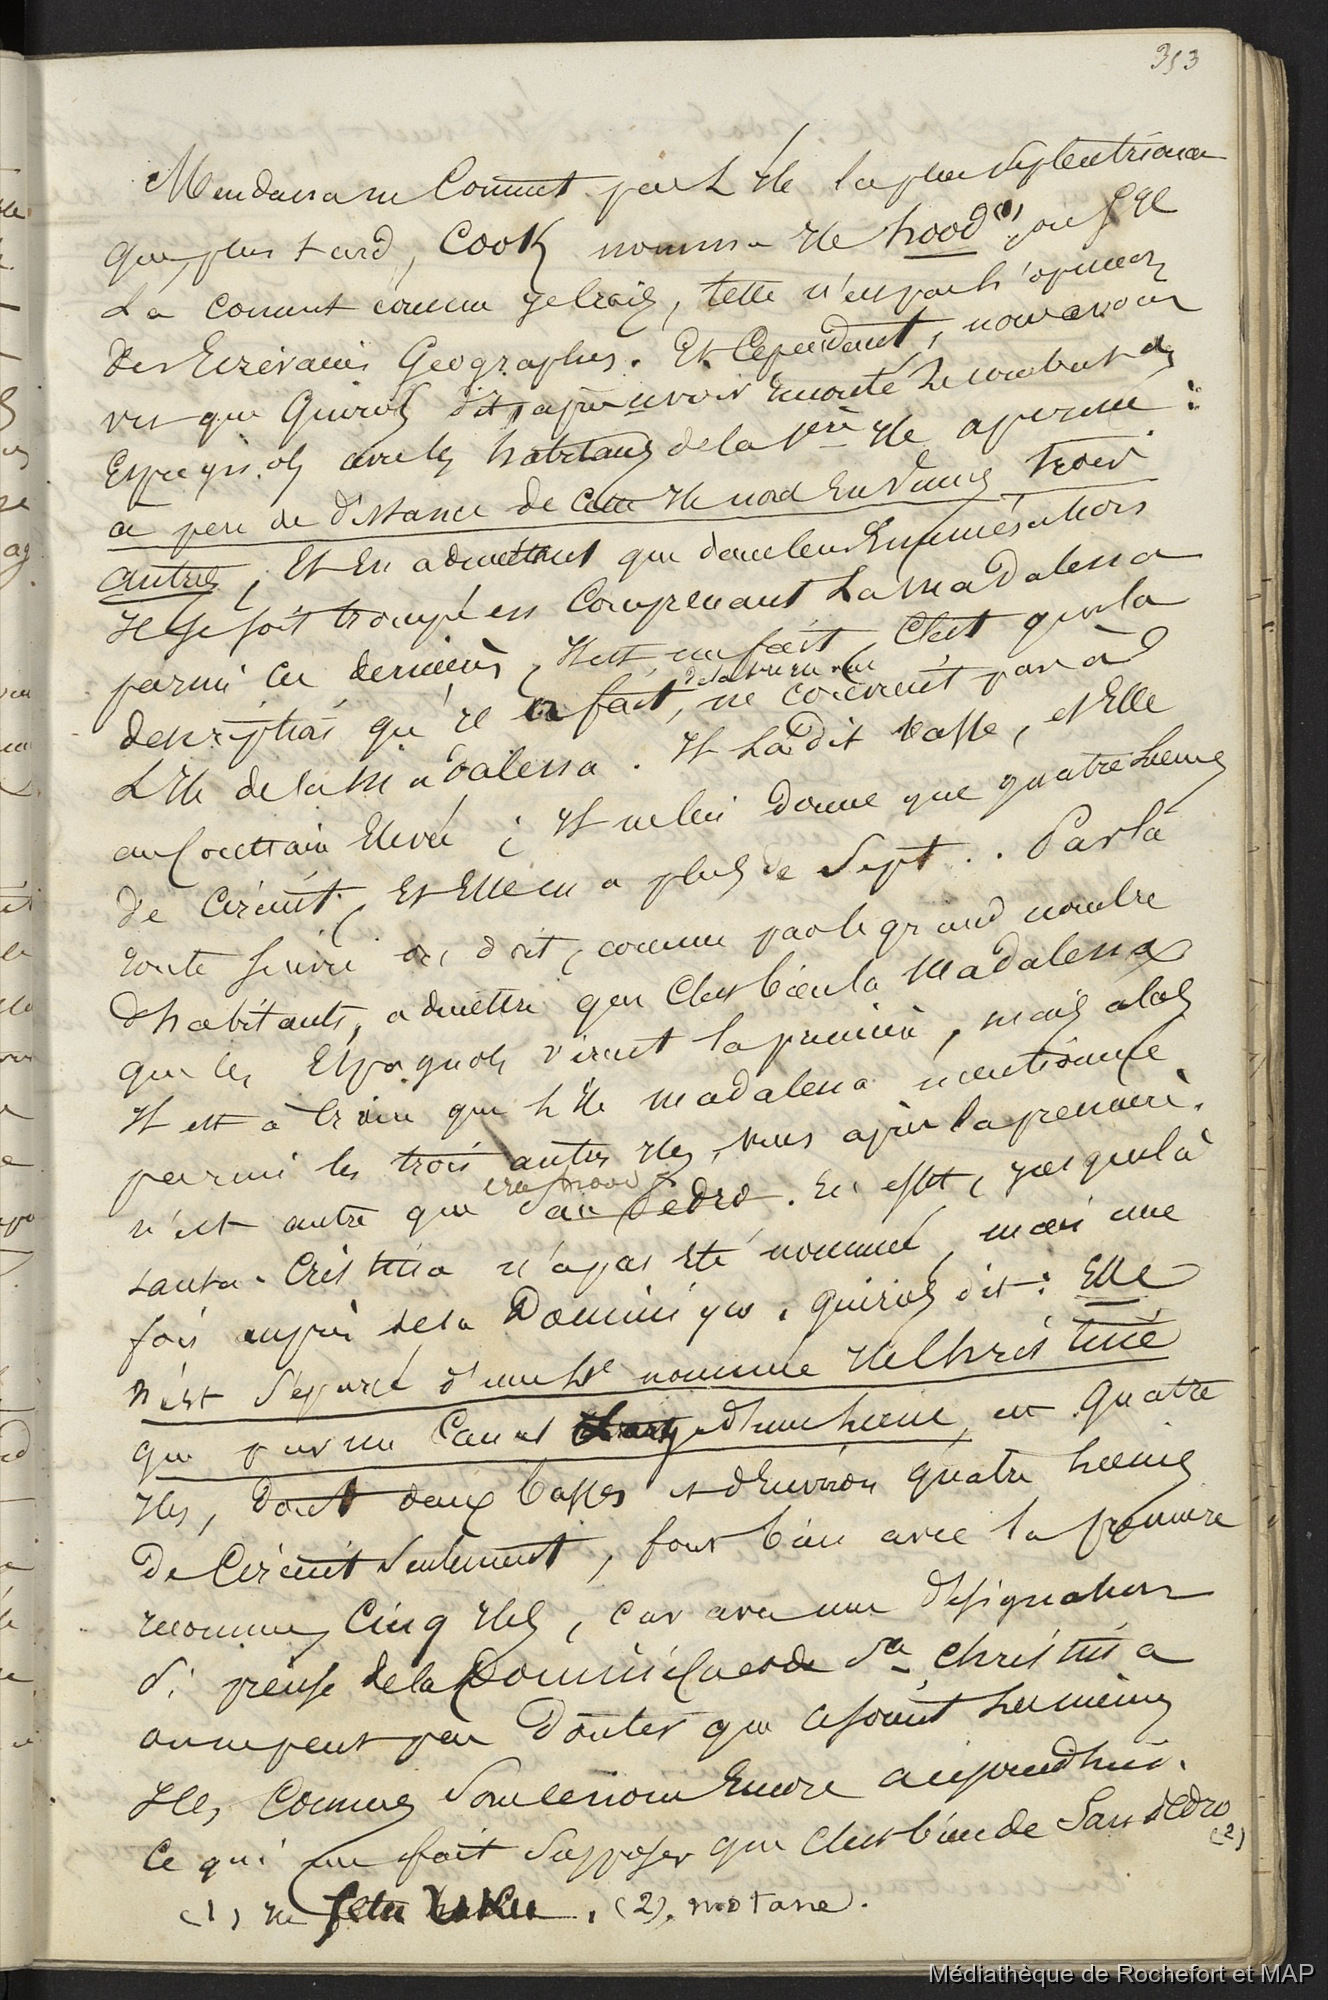 353
Mendana ne Connut pas L'Ile la plus septentrionale
que, plus tard, Cook nomma Ile hood (1), ou s'Il
La connut comme je crois, telle n'est pas l'opinion
des Ecrivains Geographes. Et Cependant, nous avons
vu que Quiros dit, après avoir raconté le combat des
Espagnols avec les habitans de la 1ère Ile aperçue :
à peu de distance de cette Ile nord En vîmes trois
autres, Et En admettant que dans leur Enumération
Il se soit trompé en Comprenant La Madalena
parmi ces dernières, Il est un fait, C'est que la
description qu'il en fait, ne convient pas à
L'Ile de la Madalena. Il La dit basse, et Elle
au Contraire Elevée ; Il ne lui donne que quatre lieues
de Circuit, Et Elle en a plus de Sept.. Par la
route suivie on doit, comme par le grand nombre
d'habitants, admettre que C'est bien la Madalena
que les Espagnols virent la première, mais alors
Il est à Croire que L'Ile Madalena mentionnée
parmi les trois autres Iles, vues après la première,
n'est autre que San Pedro. En effet, jusque là
Santa-Cristina n'a pas Eté nommée, mais une
fois auprès de la Dominique, Quiros dit : Elle
n'est Séparée d'une Ile nommée Ile Christine
que par un Canal d'une lieue, or quatre
Iles, dont deux basses et d'Environ quatre lieues
De Circuit seulement, font bien avec la première
reconnue, Cinq Iles, Car avec une désignation
si précise de la Dominica et de Sta Christina
on ne peut pas Douter que ce soient les mêmes
Iles Connues sous ce nom Encore aujourd'hui.
Ce qui me fait Supposer que C'est bien de San Pedro (2)
(1) Ile fetu houkou. (2). motane.
Médiathèque de Rochefort et MAP